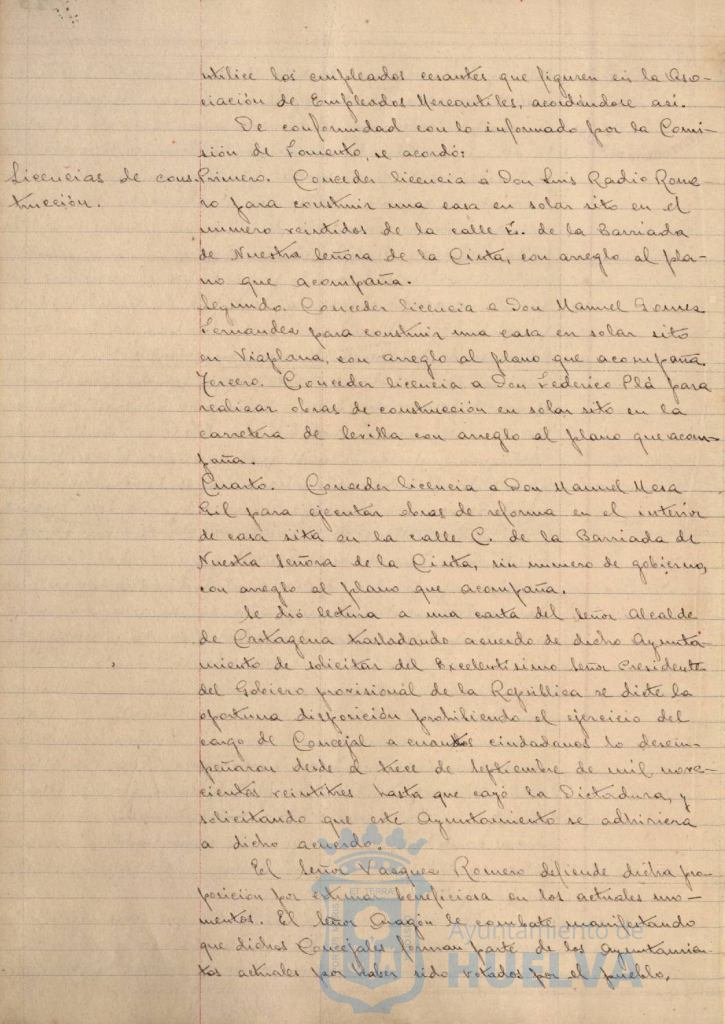 utilice los empleados cesantes que figuren en la Aso-
ciación de Empleados Mercantiles, acordándose así.
De conformidad con lo informado por la Comi-
sión de Fomento, se acordó:
Licencias de cons-
trucción.
Primero. Conceder licencia á Don Luis Radio Rome-
ro para construir una casa en solar sito en el
numero veintidos de la calle E. de la Barriada
de Nuestra Señora de la Cinta, con arreglo al pla-
no que acompaña.
Segundo. Conceder licencia a Don Manuel Gomez
Fernandez para construir una casa en solar sito
en Viaplana, con arreglo al plano que acompaña.
Tercero. Conceder licencia a Don Federico Plá para
realizar obras de construcción en solar sito en la
carretera de Sevilla con arreglo al plano que acom-
paña.
Cuarto. Conceder licencia a Don Manuel Mesa
Gil para ejecutar obras de reforma en el interior
de casa sita en la calle C. de la Barriada de
Nuestra Señora de la Cinta, sin numero de gobierno,
con arreglo al plano que acompaña.
Se dió lectura a una carta del Señor Alcalde
de Cartagena trasladando acuerdo de dicho Ayunta-
miento de solicitar del Excelentísimo Señor Presidente
del Gobiero provisional de la República se dicte la
oportuna disposición prohibiendo el ejercicio del
cargo de Concejal a cuantos ciudadanos lo desem-
peñaron desde el trece de Septiembre de mil nove-
cientos veintitres hasta que cayó la Dictadura, y
solicitando que este Ayuntamiento se adhiriera
a dicho acuerdo.
El Señor Vazquez Romero defiende dicha pro-
posición por estimar beneficiosa en los actuales mo-
mentos. El Señor Aragón le combate manifestando
que dichos Concejales forman parte de los Ayuntamien-
tos actuales por haber sido votados por el pueblo.
Ayuntamiento de
HUELVA